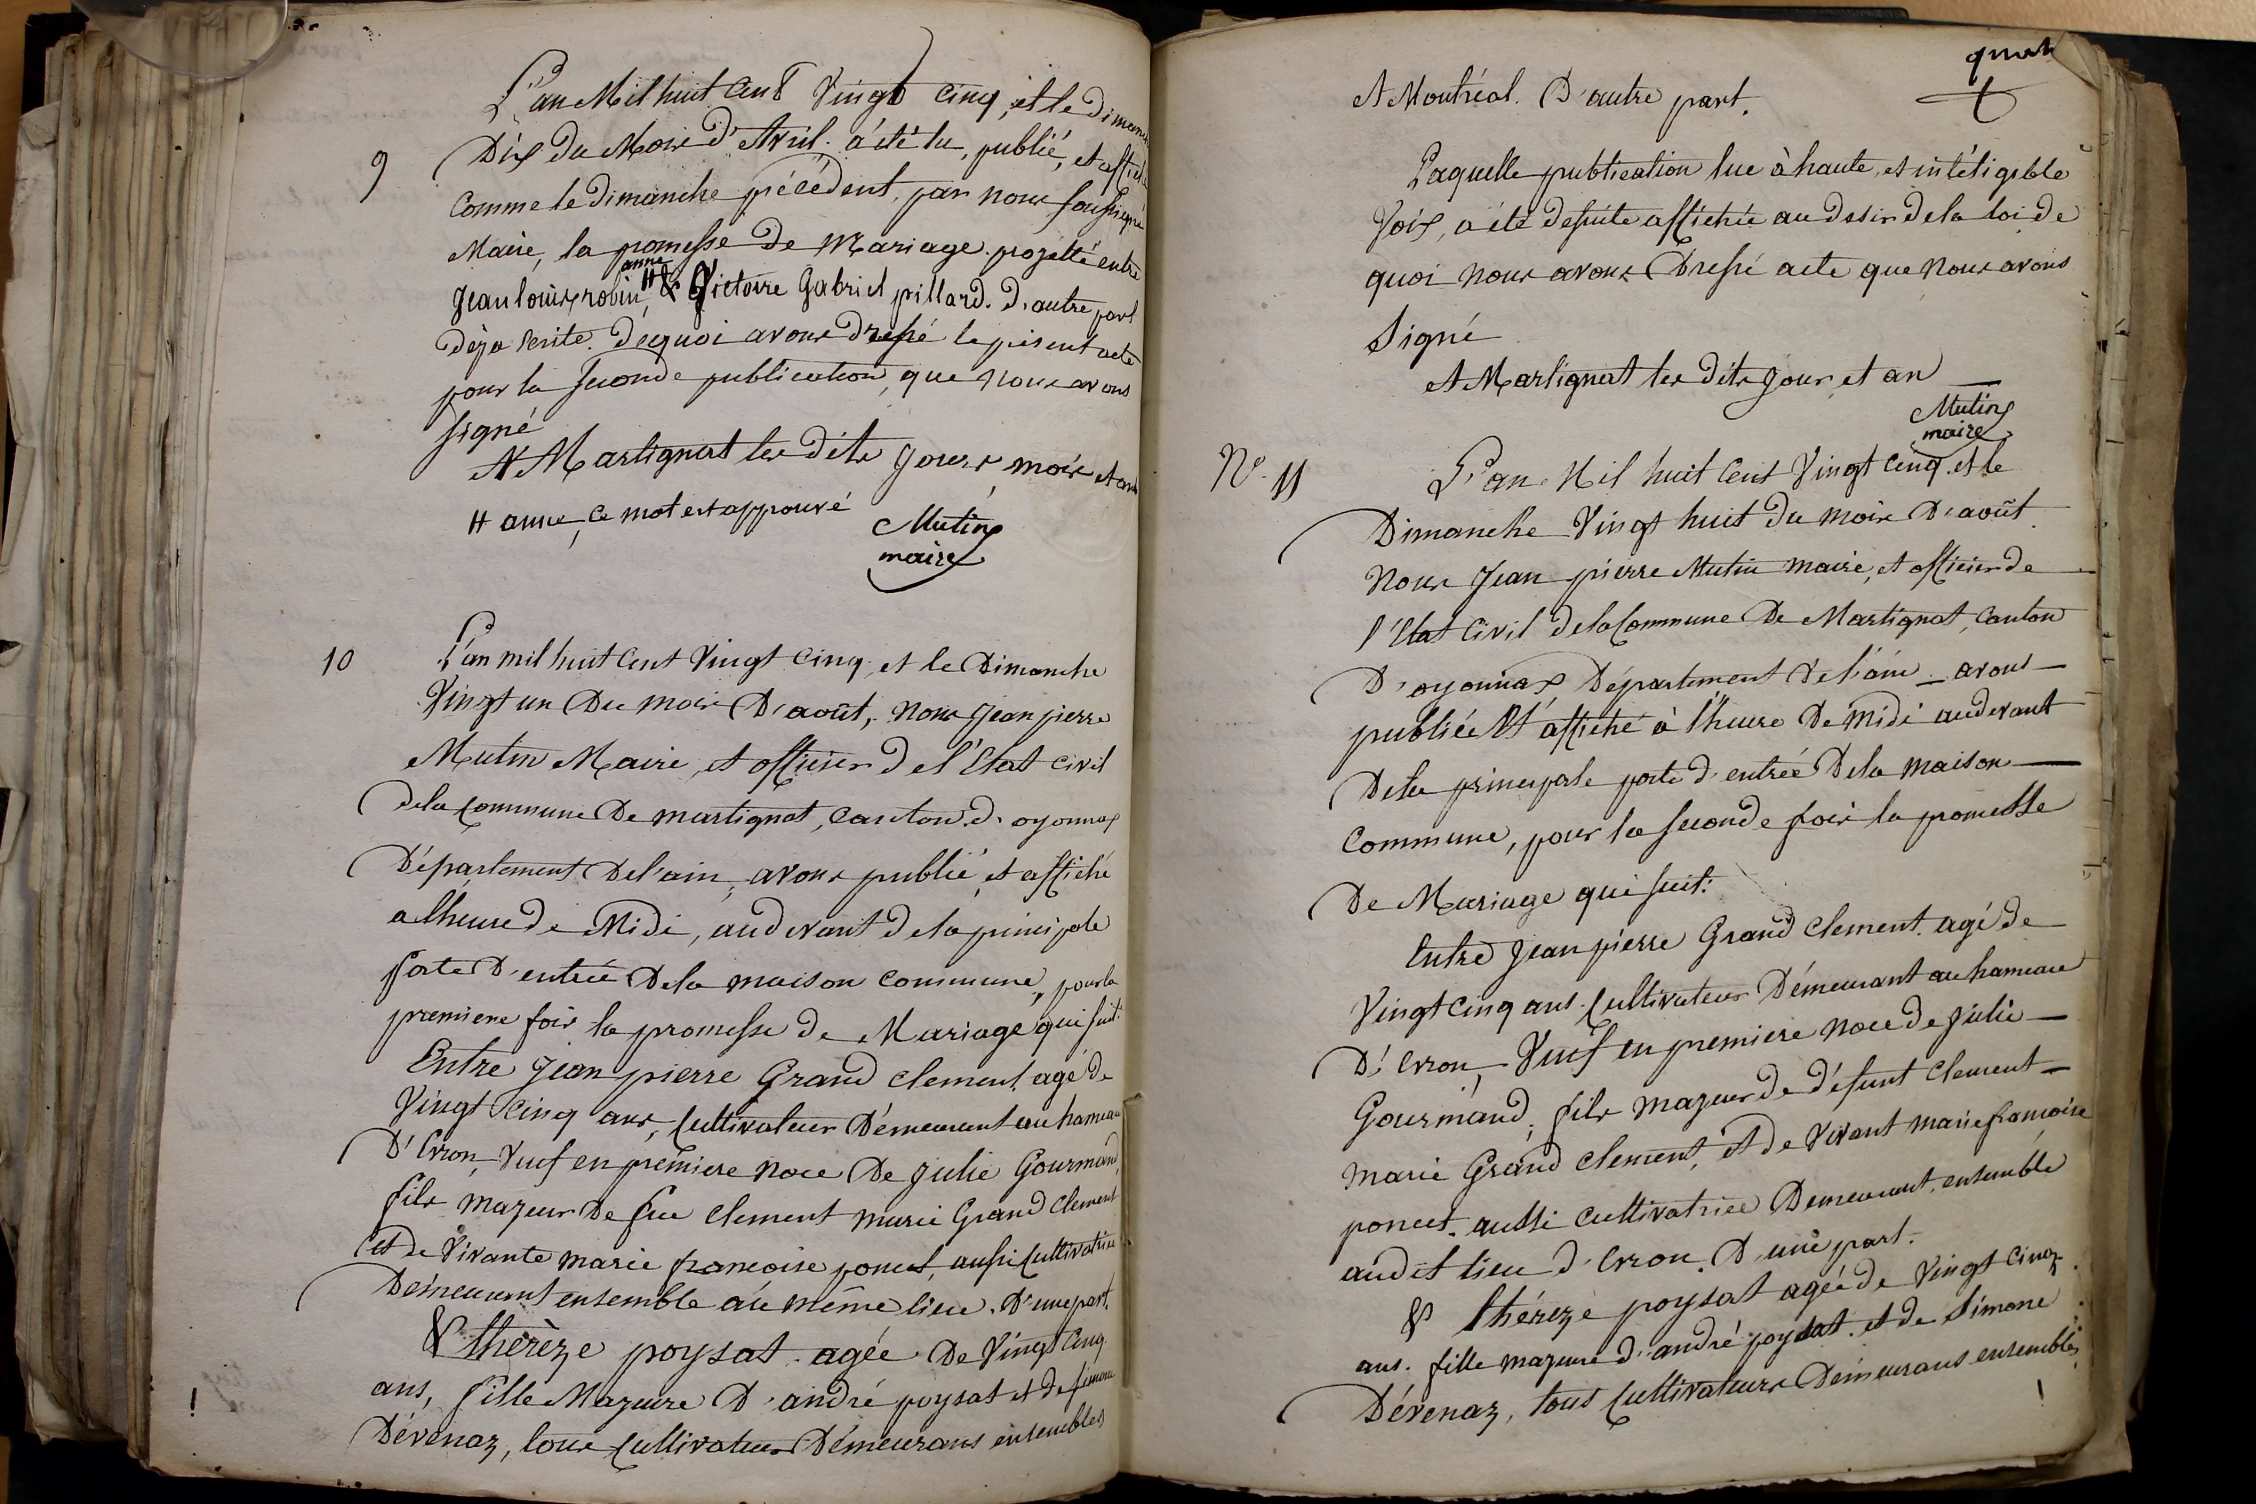 L'an Mil huit Cent Vingt cinq, et le dimanche
9
Dix du Mois d'Avril. a été lu, publié, et affiché
Comme le dimanche précédent, par nous soussigné
Maire, la promesse de Mariage projetté entre
anne
Jean louis robin, # & Victoire Gabriel pillard. d'autre part
déja dénité. De quoi avons dressé le présent acte
pour la seconde publication, que nous avons
signé
A Martignat les dits jours, mois et an
# anne, ce mot est approuvé
Mutin
maire
10
L'an mil huit Cent Vingt cinq, et le Dimanche
Vingt un Du mois D'août, nous Jean pierre
Mutin Maire, et officier de l'Etat civil
de la Commune De martignat, canton d'oyonnax
Département De l'ain, avons publié, et affiché
a l'heure de Midi, audevant de la principale
porte D'entrée De la maison commune, pour la
premiere fois la promesse de Mariage qui suit:
Entre Jean pierre Grand Clement agé de
Vingt Cinq ans, Cultivateur Démeurant au hameau
D'Erron, Veuf en premiere noce De Julie Gourmand,
fils majeur De feu Clement marie Grand Clement
et de Vivante marie francoise poncet, aussi Cultivatrice
Démeurant ensemble au même lieu. D'une part.
& thérèze poysat agée De Vingt Cinq
ans, fille Majeure D'andré poysat et de Simone
Dévenaz, tous Cultivateurs Démeurans ensembles
quat
A Montréal. D'autre part.
Laquelle publication lue à haute, et intéligible
Voix, a été desuite affichée au desir de la loi, de
quoi nous avons Dressé acte que nous avons
Signé
A Martignat les dits jour et an
Mutin
maire
N° 11
L'an Mil huit Cent Vingt cinq et le
Dimanche Vingt huit du mois D'août
Nous Jean pierre Mutin maire, et officier de
l'Etat Civil de la Commune De Martignat, canton
D'oyonnax Département De l'ain avons
publiée Et affiché à l'heure De midi audevant
De la principale porte d'entrée De la maison
Commune, pour la seconde fois la promesse
De Mariage qui suit:
Entre Jean pierre Grand Clement agé de
Vingt Cinq ans. Cultivateur Démeurant au hameau
D'Erron, Veuf en premiere noce de Julie
Gourmand, fils majeur de défunt Clement
marie Grand Clement, et de Vivant marie francoise
poncet. aussi Cultivatrice Demeurant ensemble
audit lieu d'Erron. D'une part.
& thérèze poysat agée de Vingt Cinq
ans. fille majeure d'andré poysat. et de Simone
Dévenaz, tous Cultivateurs Démeurans ensembles